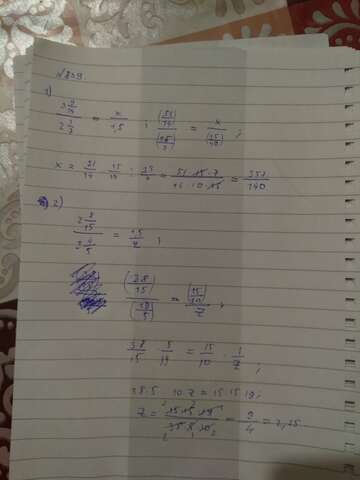 №839
1)
(3 9/14)/(2 1/7) = x/1,5 ; (51/14)/(15/7) = x/(15/10) ;
x = 51/14 · 15/10 : 15/7 = 51·15·7/14·10·15 = 357/140
2)
(2 8/15)/(3 4/5) = 1,5/z ;
(38/15)/(19/5) = (15/10)/z ;
38/15 · 5/19 = 15/10 · 1/z ;
38·5·10·z = 15·15·19 ;
z = 15·15·19/38·5·10 = 9/4 = 2,25